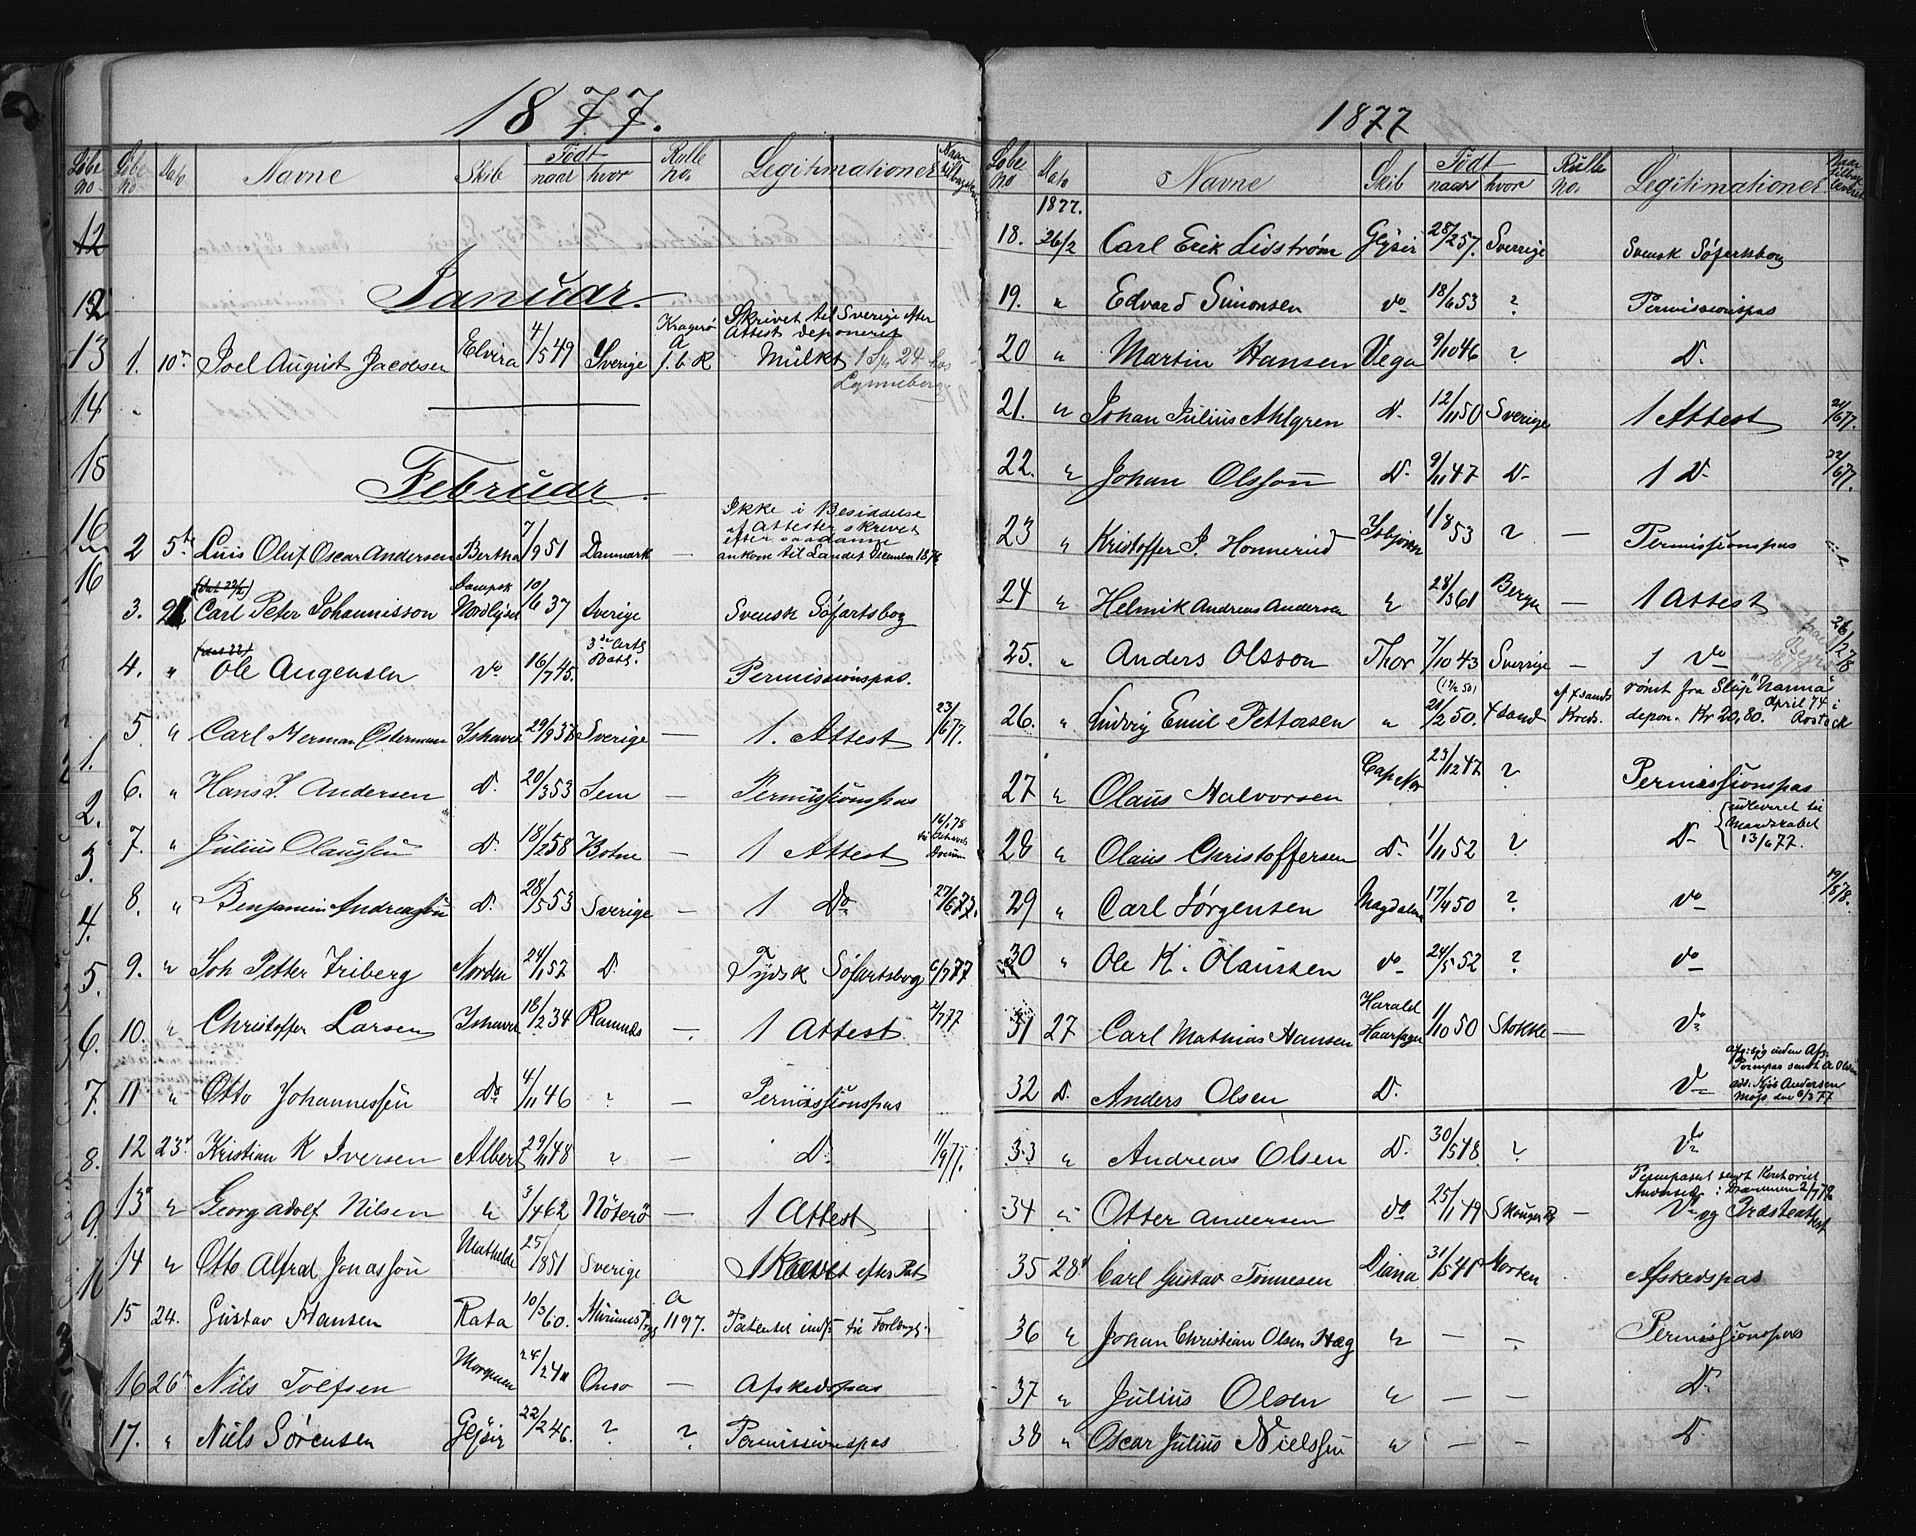 1877.
Løbe No Løbe No Dato Navne Skib Født naar hvor Rulle No. Legitimationer
Januar.
1. 10de Joel August Jacobsen Elvira 4/5 49 Sverige Kragerø A f.b.R Skrivet til Sverige efter Attest deponeret Mulkt 1 Sp 24 hos Lynneberg
Februar.
2 5te Luis Oluf Oscar Andersen Bertha 7/9 51 Danmark — Ikke i Besiddelse af Attester skrevet efter saadanne ankom til Landet December 1876
3. 21 Carl Peter Johannisson Dampsk Nordlyset 10/6 37 Sverige Svensk Søfartsbog
4. " Ole Augensen do 16/7 45. 3die Artl Batl. Permissionspas.
5. " Carl Herman Osterman Ishavet 29/9 38 Sverige — 1. Attest 23/6 77.
6. " Hans J. Andersen Do. 20/3 53 Sem — Permissionspas
7. " Julius Olaussen Do. 18/2 58 Botne — 1 Attest 16/1 78
8. " Benjamin Andreassen Do. 28/5 53 Sverige — 1 Do 27/6 77.
9. " Joh Petter Friberg Norden 24/1 52 Do Tydsk Søfartsbog 6/7 77
10. " Christoffer Larsen Ishavet 18/2 34 Ramnæs — 1 Attest 2/7 77
11 " Otto Johannessen Do 4/11 46 ? — Permissionspas
12 23de Kristian K Iversen Albert 29/11 48 ? — Do. 11/9 77.
13 " Georg Adolf Nilsen " 3/4 62 Nøterø 1 Attest
14 " Otto Alfred Jonassøn Mathilde 25/8 51 Sverige Skrevet efter Pat
15 24. Gustav Hansen Rata 10/3 60. A 1197. Patentet inds til Forlængl.
16 26de Nils Tolfsen Morgenen 24/2 40 Onsø — Afskedspas
17. " Niels Sørensen Gejsir 22/2 46. ? ? Permissionspas
1877
Løbe No Dato Navne Skib Født naar hvor Rulle No. Legitimationer
1877.
18. 26/2 Carl Erik Lidstrøm Gejsir 28/2 57. Sverrige Svensk Søfartsbog
19. " Edvard Simonsen do 18/6 53 ? Permissionspas
20 " Martin Hansen Vega 9/10 46 ? Do.
21. " Johan Julius Ahlgren Do. 12/11 50 Sverige 1 Attest 21/6 77.
22. " Johan Olsson Do. 9/11 47 Do 1 Do 22/6 77.
23 " Kristoffer J. Honnerud Isbjørn 1/8 53 ? Permissionspas
24 " Helmik Andreas Andersen " 28/3 61 Bergen — 1 Attest
25. " Anders Olsson Thor 7/10 43 Sverrige — 1 Do 26/2 78
26. " Ludvig Emil Pettersen " 21/2 50. Xsand af Xsands Kreds. rømt fra Slup "Nanna" April 74 i Rostock depon. Kr 20,80.
27 " Olaus Halvorsen Cap Nor 23/12 47 ? Permissionspas
28 " Olaus Christoffersen Do. 1/11 52 ? Do { udleveret til Mandskabet 13/6 77.
29 " Carl Jørgensen Magdalene 17/4 50 ? do 19/8 78.
30 " Ole K. Olaussen do 24/5 52 ? do
31 27 Carl Mathias Hansen Harald Haarfager 1/10 50 Stokke — Do
32 Do. Anders Olsen Do. Do Permpas sendt A Olsen ads: Njøs Andersen Moss den 6/3 77
33 " Andreas Olsen Do. 30/5 48. ? Do
34 " Otter Andersen do 25/1 49 Skouger — Permpasset sendt Kontoriet Andersen i Drammen 2/7 78 Do og Præsteattest
35 28de Carl Gustav Tønnesen Diana 31/5 41 Horten Afskedspas
36 " Johan Christian Olsen Hæg " — — Permissionspas
37 " Julius Olsen " — — Do
38 " Oscar Julius Nielssen " — — Do